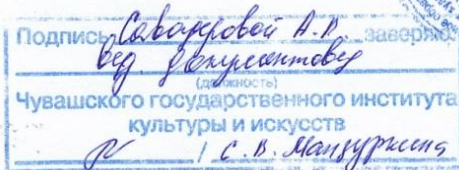 Подпись Савадеровой А.П. заверяю:
Вед. документовед
(должность)
Чувашского государственного института
культуры и искусств
/ С.В. Манзуркина